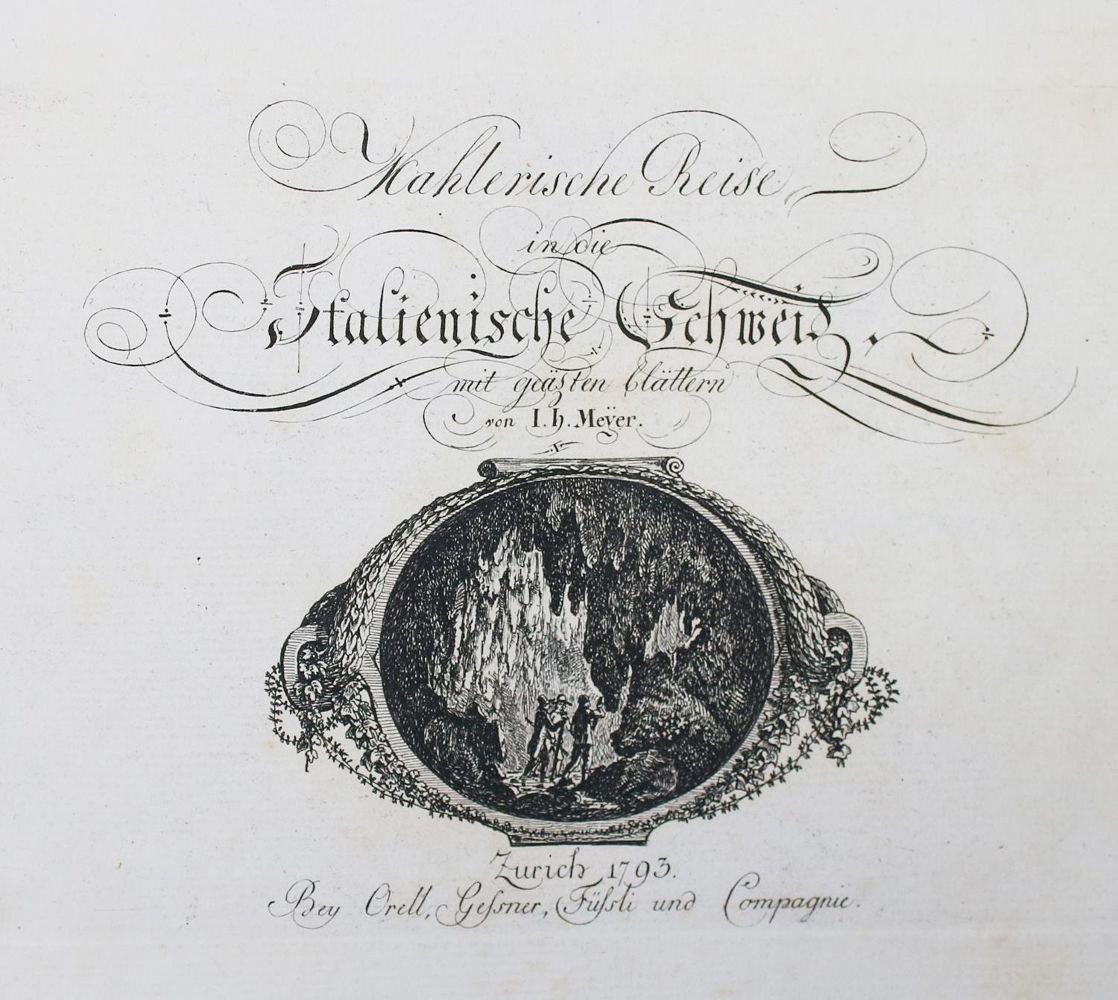 Mahlerische Reise
in die
Italienische Schweiz,
mit geäzten blättern
von I. H. Meÿer.
Zurich 1793.
Bey Orell, Geſsner, Füſsli und Compagnie.